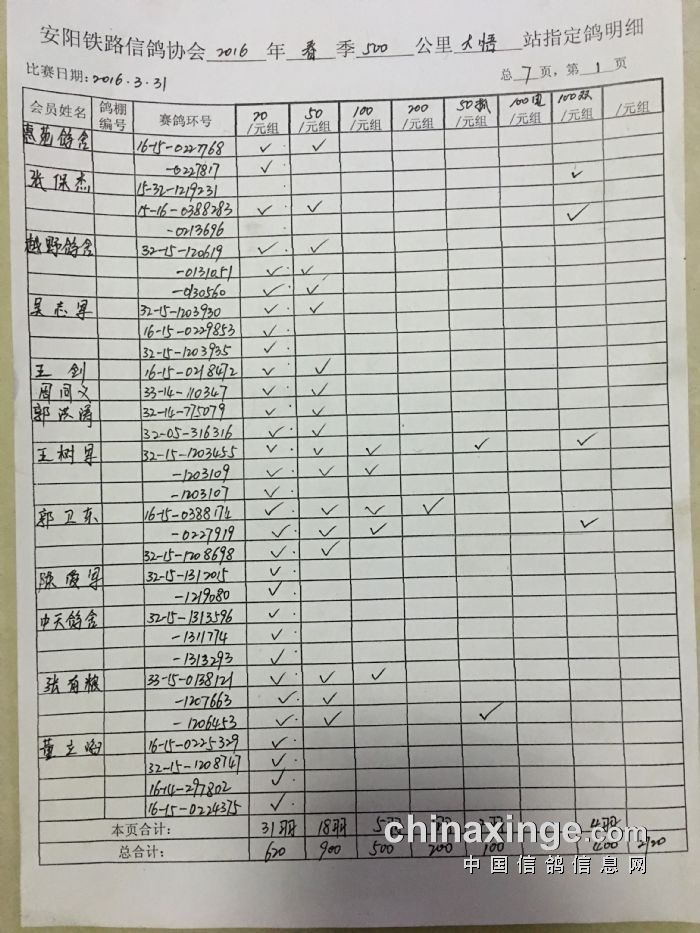 安阳铁路信鸽协会 2016 年 春 季 500 公里 大悟 站指定鸽明细
比赛日期: 2016.3.31 总 7 页, 第 1 页
会员姓名 鸽棚编号 赛鸽环号 20/元组 50/元组 100/元组 200/元组 50抓/元组 100/元组 100双/元组 /元组
惠苑鸽舍 16-15-0227768 ✓ ✓
-0227817 ✓
张保杰 15-32-1219231 ✓
15-16-0388283 ✓ ✓
-0213696 ✓
越野鸽舍 32-15-120619 ✓ ✓
-0131051 ✓ ✓
-0130560 ✓ ✓
吴志军 32-15-1203930 ✓ ✓
16-15-0229853 ✓
32-15-1203935 ✓
王剑 16-15-0218472 ✓ ✓
周同义 33-14-110347 ✓ ✓
郭洪涛 32-14-775079 ✓ ✓
32-05-316316 ✓ ✓
王树军 32-15-1203455 ✓ ✓ ✓ ✓ ✓
-1203109 ✓ ✓ ✓
-1203107 ✓
郭卫东 16-15-0388174 ✓ ✓ ✓ ✓
-0227919 ✓ ✓ ✓ ✓
32-15-1208698 ✓ ✓
陈爱军 32-15-1312015 ✓
-1219080 ✓
中天鸽舍 32-15-1313596 ✓
-1311774 ✓
-1313293 ✓
张有粮 33-15-0138121 ✓ ✓ ✓
-1207663 ✓ ✓
-1206453 ✓ ✓ ✓
董立 16-15-0225329 ✓
32-15-1208747 ✓
16-14-297802 ✓
16-15-0224375 ✓
本页合计: 31羽 18羽 5羽 羽 2羽 4羽
总合计: 620 900 500 200 100 400 2720
chinaxinge.com
中国信鸽信息网